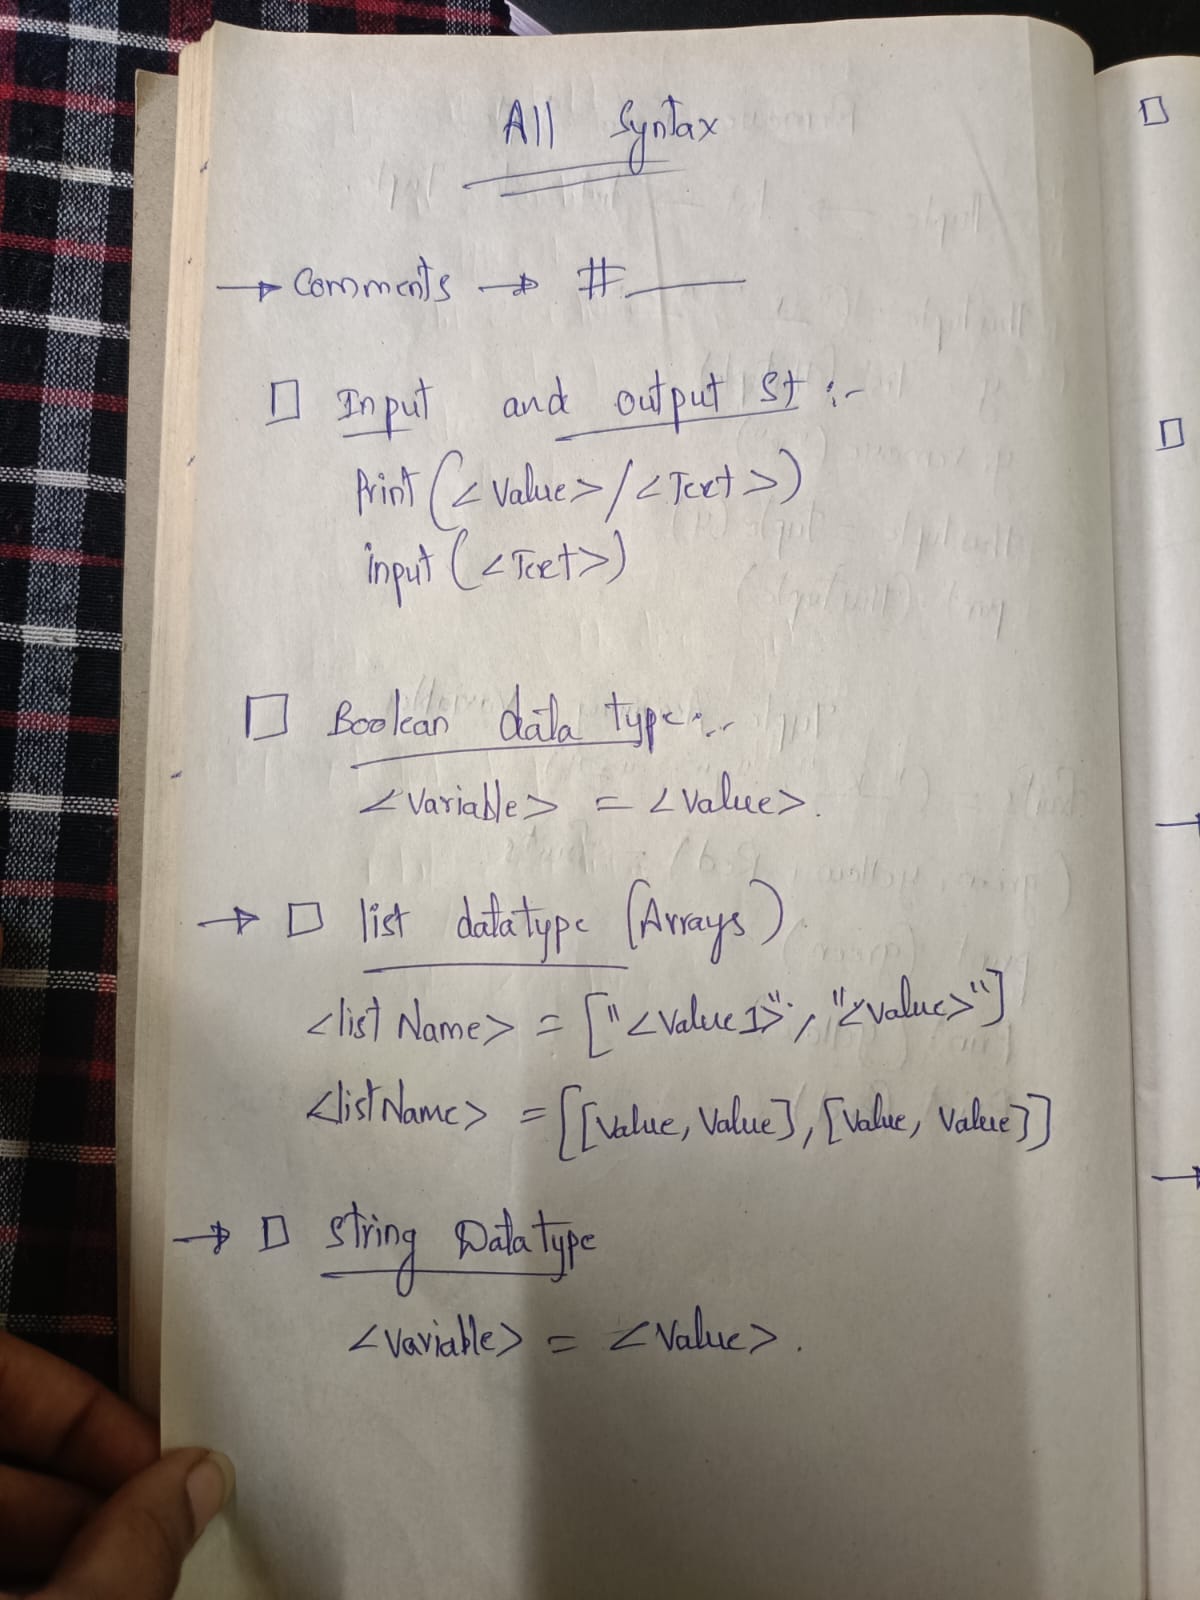 All Syntax
→ Comments → #
□ Input and output St :-
Print (<Value>/<Text>)
input (<Text>)
□ Boolean data type:-
<Variable> = <Value>.
→ □ list datatype (Arrays)
<list Name> = ["<Value1>", "<Value>"]
<listName> = [[Value, Value], [Value, Value]]
→ □ String Datatype
<Variable> = <Value>.